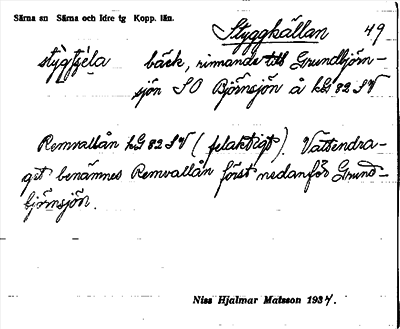 Särna sn Särna och Idre tg Kopp. län.
Styggkällan 49
bäck, rinnande till Grundbjörn-
sjön SO Björnsjön å kG 82 SV
Remvallån kG 82 SV (felaktigt). Vattendra-
get benämnes Remvallån först nedanför Grund-
björnsjön.
Niss Hjalmar Matsson 1937.